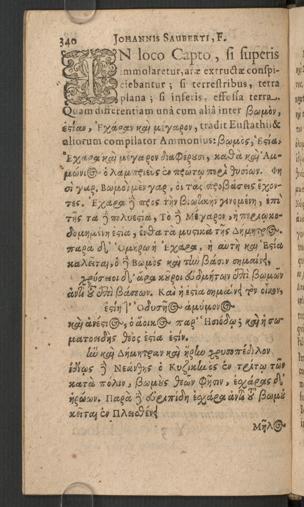 340 JOHANNIS SAUBERTI, F.
IN loco Capto, si superis
immolaretur, aræ extructæ conspi-
ciebantur; si terrestribus, terra
plana; si inferis, effossa terra.
Quam differentiam unà cum aliâ inter βωμὸν,
ἑστίαν, Ἐχάραν καὶ μέγαρον, tradit Eustathii &
aliorum compilator Ammonius: βωμὸς, Ἑστία,
Ἐχάρα καὶ μέγαρον διαφέρουσι, καθὰ καὶ Ἀμ-
μώνι@ ὁ λαμπριεὺς ἐν πρώτῳ περὶ θυσιῶν. Φη
σὶ γάρ. Βωμοὶ μὲν γὰρ, οἱ τὰς προβάσεις ἔχον-
τες. Ἐχάρα ἡ πρὸς τὴν βιωτικὴν γενομένη, ἐπὶ
τῆς γᾶ Ἑστία, Τὸ Μέγαρον, ἡ περιῳκο-
δομημένη ἑστία, ἔνθα τὰ μυστικὰ τῆς Δήμητρ@.
παρὰ δὲ Ὁμήρῳ ἡ Ἐχάρα, ἡ αὐτὴ καὶ Ἑστία
καλεῖται, ὁ Βωμὸς καὶ τὴν βάσιν σημαίνει,
χρύσειοι δ' ἄρα κοῦροι ἐϋδμήτων ἐπὶ βωμῶν
ἀντὶ τοῦ ἐπὶ βάσεων. Καὶ ἡ ἑστία σημαίνει τὸν οἶκον,
Ὀδυσῆ@ ἀμύμον@
καὶ ἀνέστι@, ὁ ἄοικ@ παρ' Ἡσιόδῳ; καὶ ἡ σω-
ματοειδὴς θεὸς ἑστία ἐστίν.
καὶ Δήμητραν καὶ ἥραν χρυσοπέδιλον
ἰδίως ἡ Νεάνθης ὁ Κυζικηνὸς ἐν τρίτῳ τῶν
κατὰ πόλιν, βωμοὺς θεῶν φησιν, ἐχάρας δὲ
ἡρώων. Παρὰ Εὐριπίδῃ ἐχάρα ἀντὶ τοῦ βωμοῦ
κεῖται ἐν Πλεισθένει
Μῆλ@